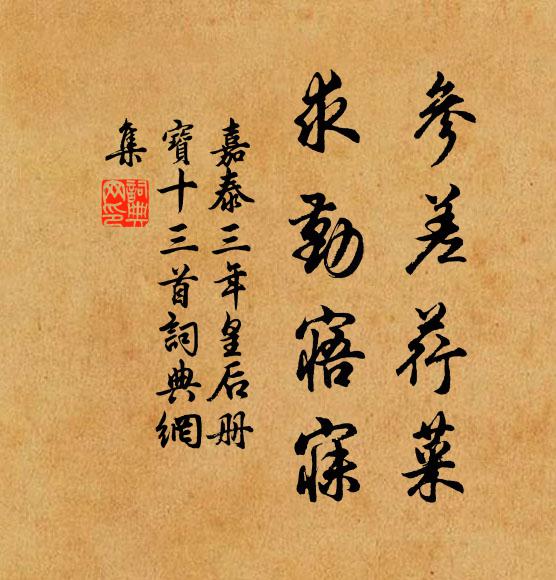 參差荇菜
求勤寤寐
嘉泰三年皇后册
寶十三首詞典網
集
詞典
网印